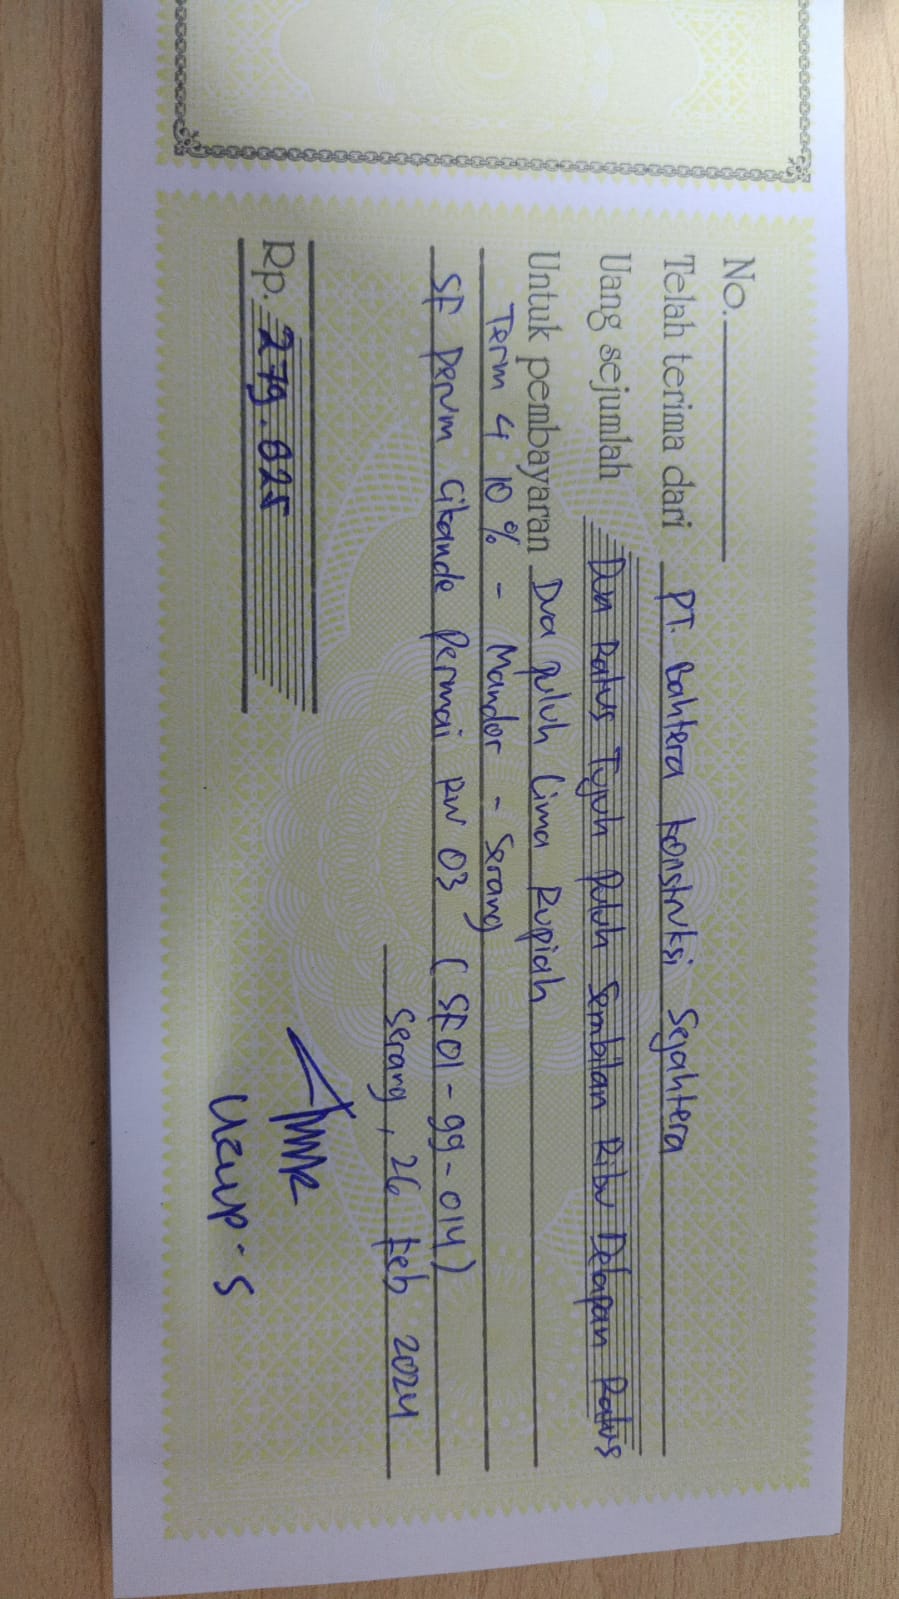 No.
Telah terima dari PT. Bahtera Konstruksi Sejahtera
Uang sejumlah Dua Ratus Tujuh Puluh Sembilan Ribu Delapan Ratus
Untuk pembayaran Dua puluh Lima Rupiah
Term 4 10% - Mandor - Serang
SF Perum Cikande Permai RW 03 (SF01-99-014)
Serang, 26 Feb 2024
Rp. 279.825
Ucup.S